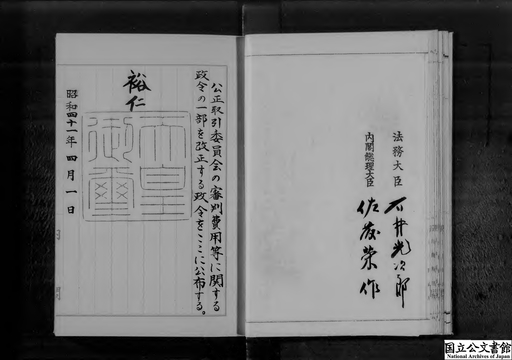 公正取引委員会の審判費用等に関する
政令の一部を改正する政令をここに公布する。
裕仁
天皇御璽
昭和四十一年四月一日
法務大臣 石井光次郎
内閣総理大臣 佐藤榮作
国立公文書館
National Archives of Japan